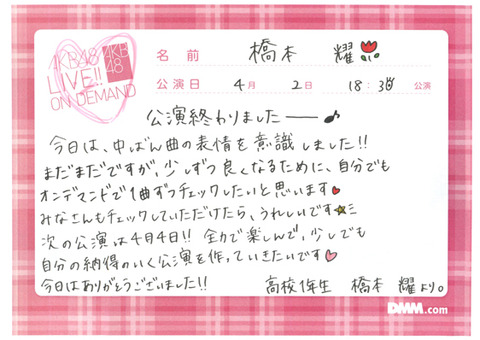 AKB48
LIVE!!
ON DEMAND
AKB
48
名前 橋本 耀
公演日 4月 2日 18:30 公演
公演終わりました――♪
今日は、中ばん曲の表情を意識しました!!
まだまだですが、少しずつ良くなるために、自分でも
オンデマンドで1曲ずつチェックしたいと思います♥
みなさんもチェックしていただけたら、うれしいです★ミ
次の公演は4月4日!! 全力で楽しんで、少しでも
自分の納得のいく公演を作っていきたいです♡
今日はありがとうございました!! 高校1年生 橋本 耀より。
DMM.com